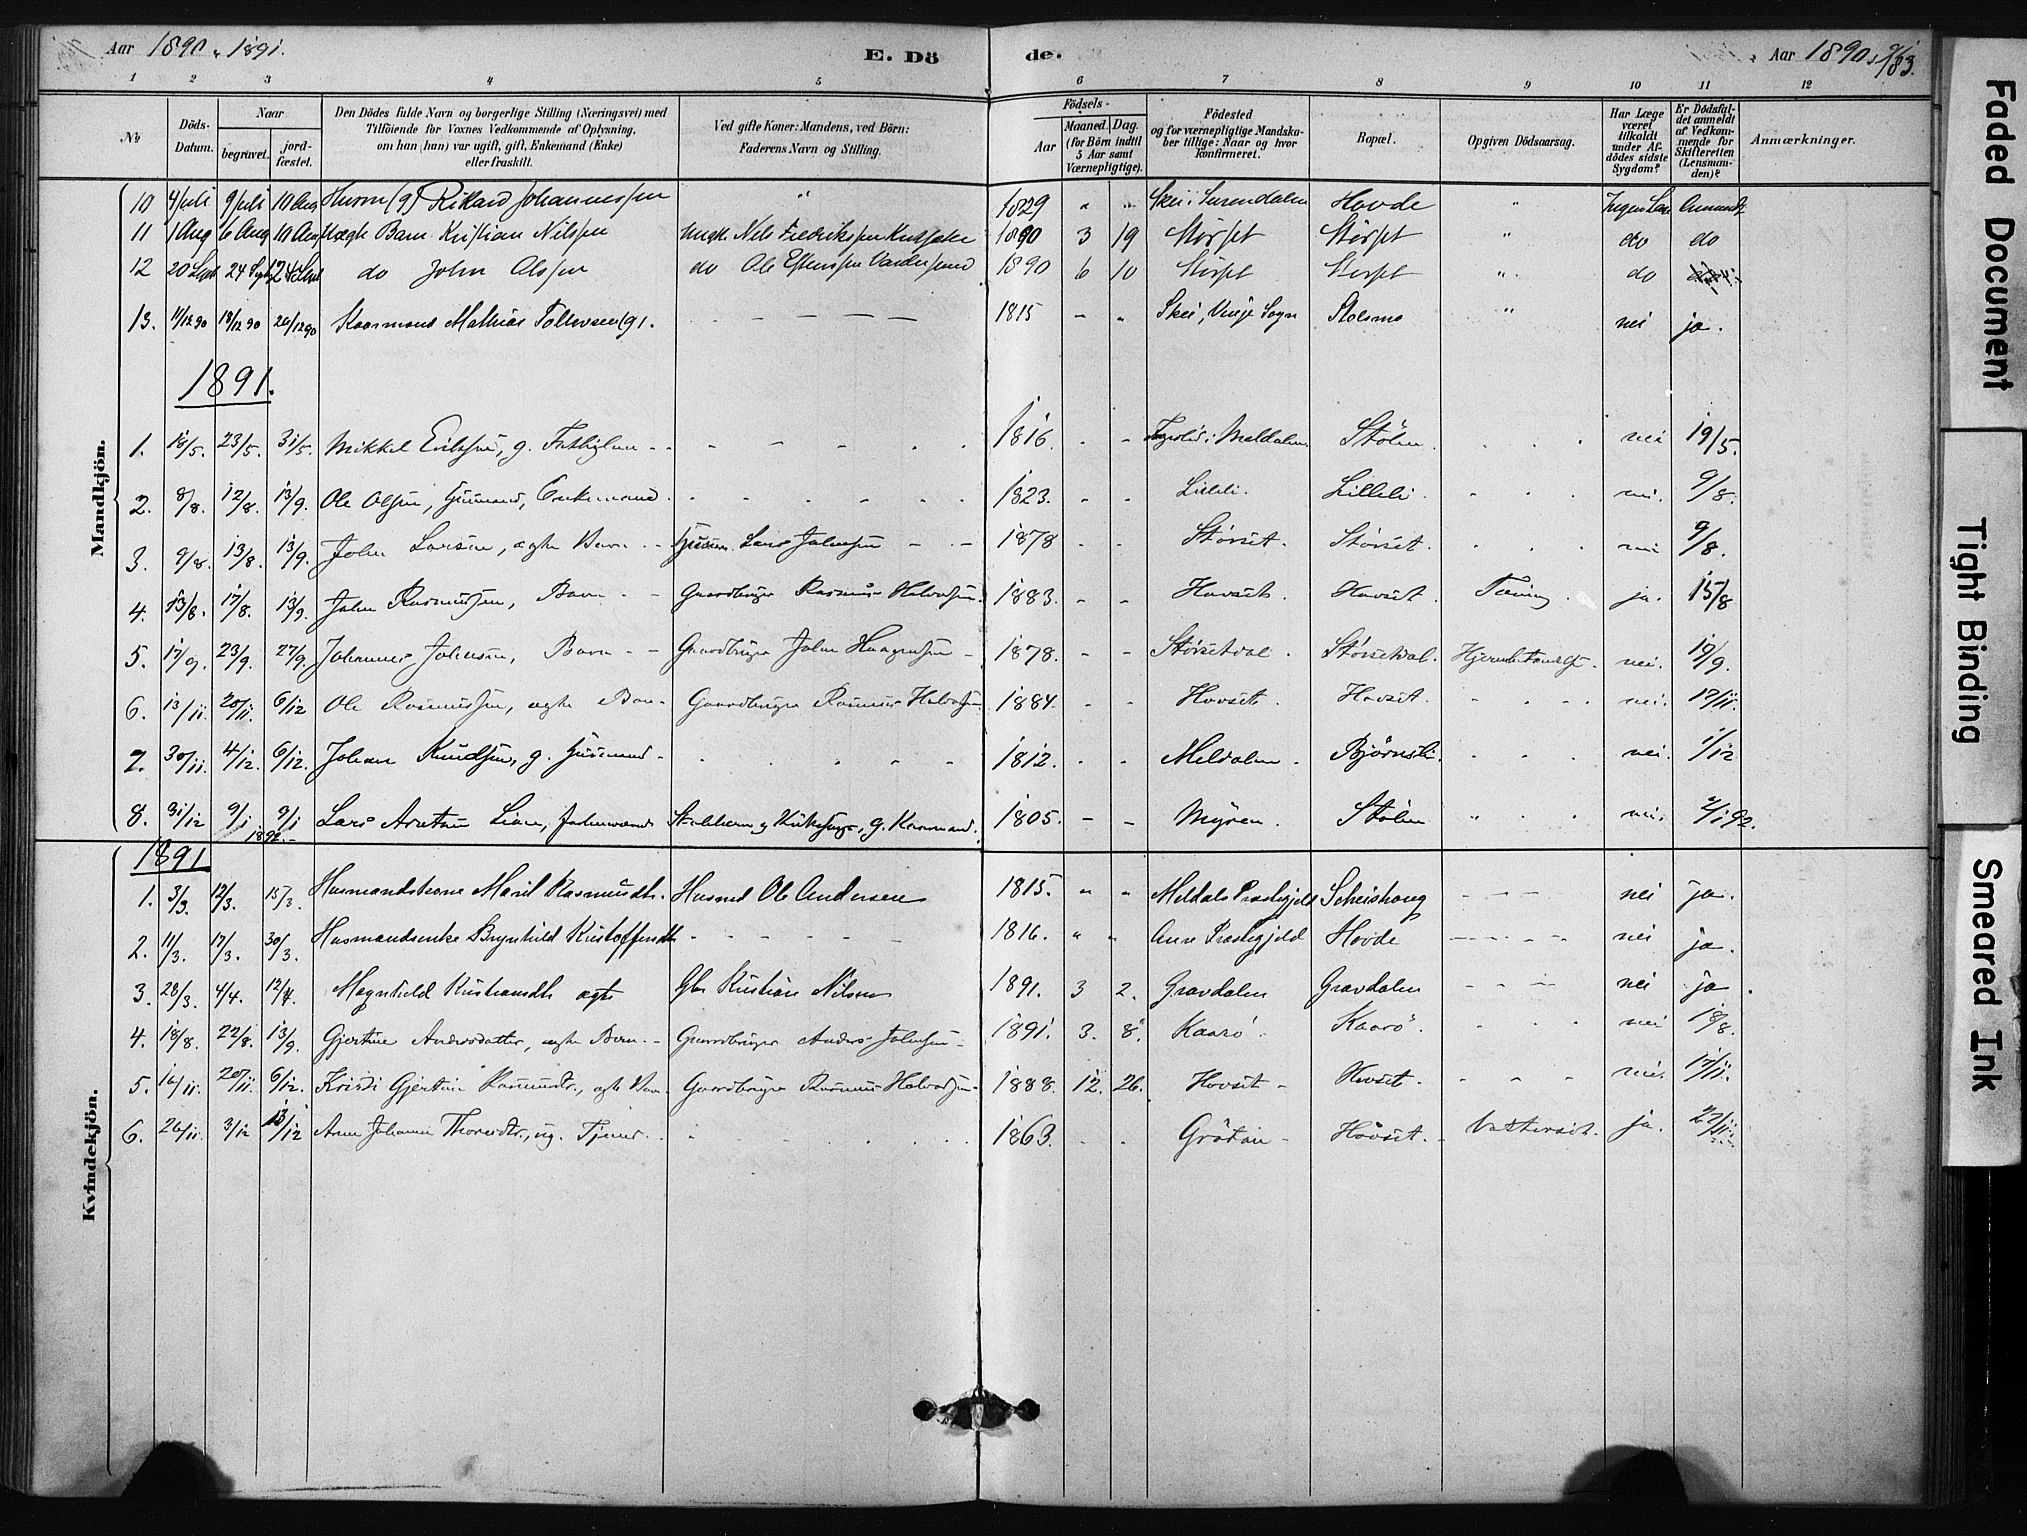 Aar 1890 & 1891.
E. Dö
de.
Aar 1890
83.
1 2 3 4 5 6 7 8 9 10 11 12
№
Döds-Datum.
Naar
begravet.
jordfæstet.
Den Dödes fulde Navn og borgerlige Stilling (Næringsvei) med Tilföiende for Voxnes Vedkommende af Oplysning, om han (hun) var ugift, gift, Enkemand (Enke) eller fraskilt.
Ved gifte Koner: Mandens, ved Börn: Faderens Navn og Stilling.
Födsels-
Aar
Maaned. Dag.
(for Börn indtil 5 Aar samt Værnepligtige).
Födested og for værnepligtige Mandskaber tillige: Naar og hvor konfirmeret.
Bopæl.
Opgiven Dödsaarsag.
Har Læge været tilkaldt under Afdödes sidste Sygdom?
Er Dödsfaldet anmeldt af Vedkommende for Skifteretten (Lensmanden)?
Anmærkninger.
Mandkjön.
10 4 Juli 9 Juli 10 Aug Rikard Johannessen " 1829 " " Skei i Surendalen Hovde "
11 1 Aug 6 Aug 10 Aug Uægte Barn Kristian Nilsen Ungk Nils Fredriksen 1890 3 19 Störset Störset " do do
12 20 Sept 24 Sept do John Olsen do Ole Estensen 1890 6 10 Störset Störset " do
13. 11/12 90 18/12 90 20/12 90 Kaarmand Mathias Tollevsen (g). - - - - - 1815 - " Skei, Vinje Sogn Stolsmo " nei ja.
1891.
1. 18/5. 23/5. 31/5. Mikkel Eriksen, g. - - 1816. - - i Meldalen Stölen nei 19/5.
2. 8/8. 12/8. 13/9. Ole Olsen, Husmand, Enkemand. 1823. - - Lilleli. Lilleli - nei. 9/8.
3. 9/8. 13/8. 13/9. John Larsen, ægte Barn - - Husm. Lars Johnsen - - 1878 - - Störset. Störset. nei 9/8.
4. 13/8. 17/8. 13/9. John Rasmussen, Barn - - Gaardbruger Rasmus Halvorsen. 1883. - - Hovset. Hovset. Tæring. ja. 15/8
5. 17/9. 23/9. 27/9. Johannes Johnsen, Barn - - Gaardbruger John Haagensen - 1878. - - Störsetdal. Störsetdal. nei. 19/9.
6. 13/11. 20/11. 6/12 Ole Rasmussen, ægte Barn - Gaardbruger Rasmus Halvorsen 1884. - - Hovset. Hovset. nei. 17/11.
7. 30/11. 4/12. 6/12. Johan Knudsen, g. Husmand - 1812. - - Meldalen. Björnsli. nei. 1/12
8. 31/12 9/1 9/1 1892.- Lars Arntsen Lien, g. Kaarmand. 1805. - - Myren. Stölen " nei. 4/1 92.
Kvindekjön.
1891
1. 3/3. 12/3. 15/3. Husmandskone Marit Rasmusdtr. Husmd Ole Andersen 1815. " " Meldals Præstegjeld Scheishaug - - - nei ja.
2. 11/3. 17/3. 30/3. Husmandsenke Brynhild Kristoffersdtr - - - - 1816. " " Aure Præstegjeld Hovde - - - - nei ja.
3. 28/3. 4/4. 12/4. Magnhild Kristiansdtr ægte Gbr Kristian Nilsen 1891. 3 2. Gravdalen Gravdalen - - - nei ja.
4. 18/8. 22/8. 13/9. Gjertine Andersdatter, ægte Barn. - Gaardbruger Anders Johnsen - 1891. 3. 8. Kaarö. Kaarö. nei 18/8.
5. 16/11. 20/11. 6/12. Kristi Gjertine Rasmusdtr., ægte Barn - Gaardbruger Rasmus Halvorsen - 1888. 12. 26. Hovset - Hovset. nei. 17/11.
6. 26/11. 3/12 13/12 Anne Johanne Thoresdtr., ug. Tjener 1863. - - Grötan - Hovset. - Vattersot. ja. 27/11.
Faded Document
Tight Binding
Smeared Ink